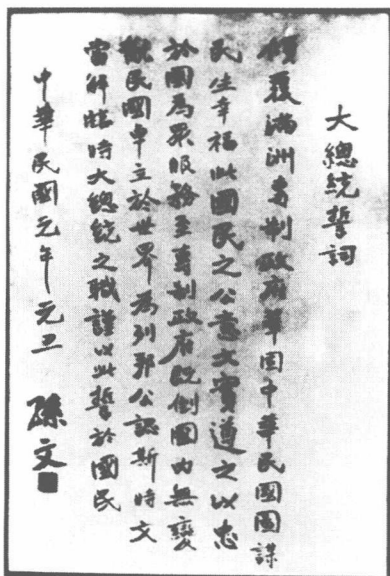 大總統誓詞
傾覆滿洲專制政府鞏固中華民國圖謀
民生幸福此國民之公意文實遵之以忠
於國為眾服務至專制政府既倒國內無變
亂民國卓立於世界為列邦公認斯時文
當解臨時大總統之職謹以此誓於國民
中華民國元年元旦 孫文